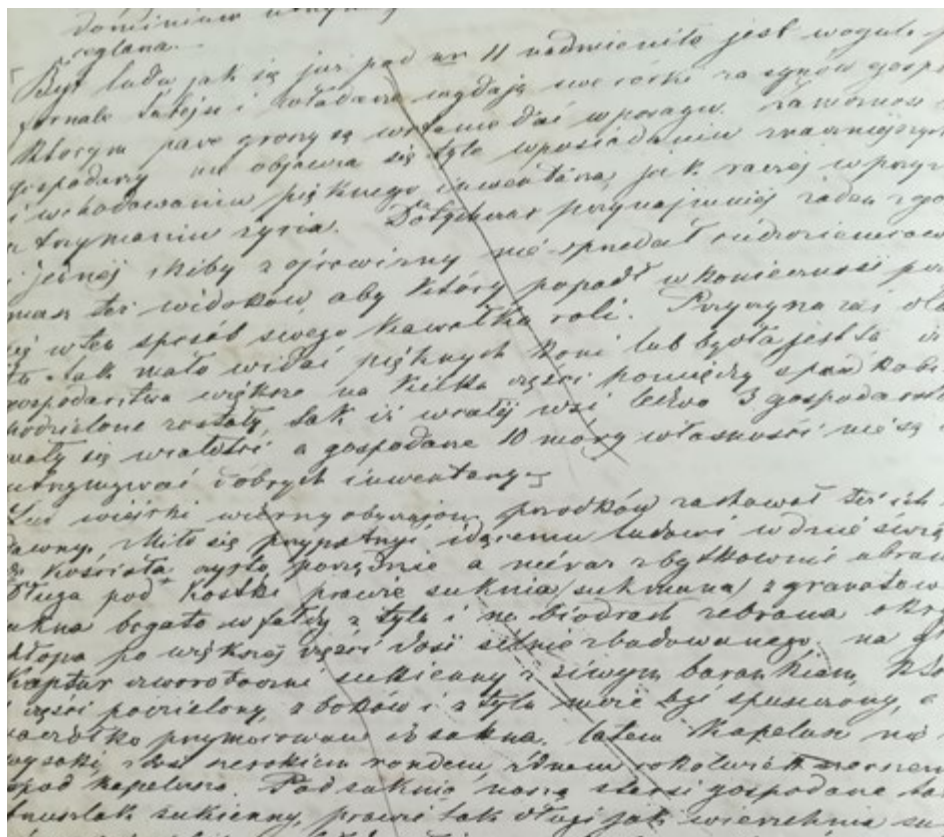 dominium
ceglana.
Byt ludu jak się już pod nr 11 nadmieniło jest wogule
fornale tutejsi i wydają swe córki za synów gospo
którym parę groszy są w stanie dać w posagu. Zamożność
gospodarzy nie objawia się tyle w posiadaniu znaczniejszych
i wchodowaniu pięknego inwentarza, jak raczej w przy
utrzymaniu życia. Dotychczas przynajmniej żaden z go
i jednej skiby z ojcowizny nie sprzedał cudzoziemcow
masz też widoków aby który popadł w konieczność po
się w ten sposób swego kawałka roli. Przyczyna zaś dla
tu tak mało widać pięknych koni lub bydła jest ta iż
gospodarstwa większe na kilka części pomiędzy spadkobi
podzielone zostały, tak iż w całej wsi ledwo 3 gospodarst
wały się w całości a gospodarze 10 mórg własności nie są
utrzymywać dobrych inwentarzy.
Lud wiejski wierny obyczajom przodków zachował też ich
dawny. Miło się przypatrzyć idącemu ludowi w dnie świą
do kościoła czysto, porządnie a nieraz zbytkownie ubran
Długa pod kostki prawie suknia (sukmana) z granatow
sukna bogato w fałdy z tyłu i na biodrach zebrana okry
chłopa po większej części dość silnie zbudowanego. na gł
kaptur czworoboczni sukienny z siwym barankiem, kt
części podzielony, z boków i z tyłu może być spuszczony, a
przymocowan z sukna. latem kapelusz na
wysoki, dość szerokiem rondem,
spod kapelusza. Pod suknią noszą starsi gospodarze ta
bruslak sukienny, prawie tak długi jak wierzchnia su